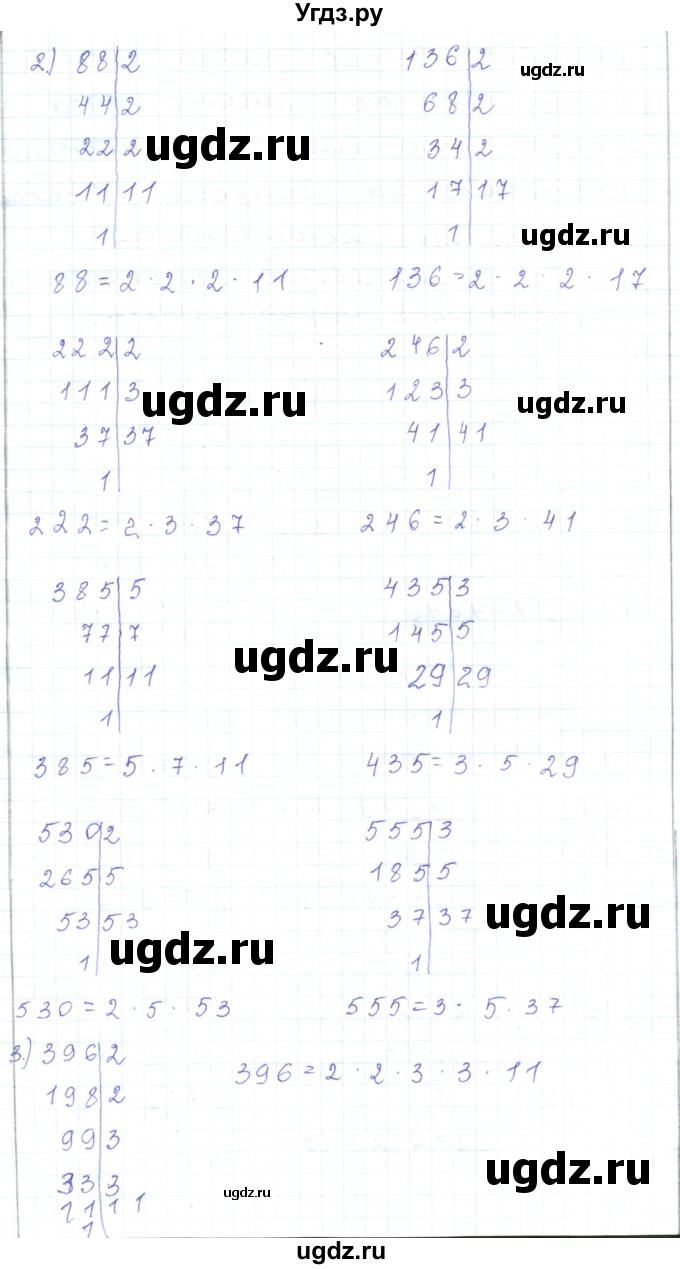 Угдз.ру
2.) 88|2 136|2
ugdz.ru
44|2 68|2
22|2 34|2
ugdz.ru
11|11 17|17
1| 1|
ugdz.ru
88=2·2·2·11 136=2·2·2·17
222|2 246|2
111|3 123|3
ugdz.ru ugdz.ru
37|37 41|41
1| 1|
222=2·3·37 246=2·3·41
385|5 435|3
77|7 145|5
ugdz.ru
11|11 29|29
1| 1|
385=5·7·11 435=3·5·29
530|2 555|3
265|5 185|5
53|53 37|37
ugdz.ru
ugdz.ru
1| 1|
530=2·5·53 555=3·5·37
3.) 396|2 396=2·2·3·3·11
198|2
99|3
33|3
ugdz.ru
ugdz.ru
11|11
1|
ugdz.ru